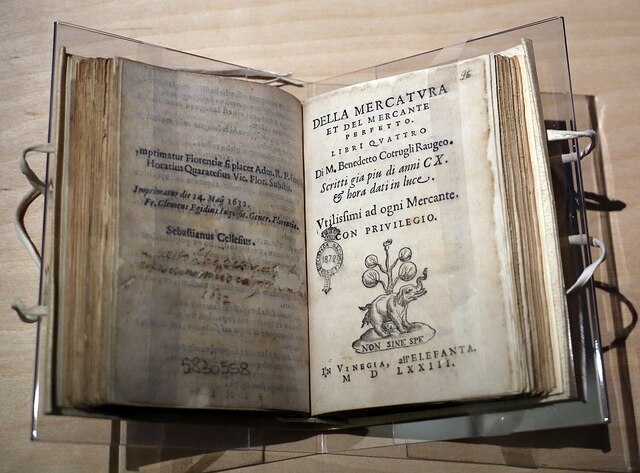 Imprimatur Florentiæ si placet Adm. R. P. Inq.
Horatius Quaratesius Vic.
Imprimatur die 14. Maij 1632.
Fr. Clemens Egidius Inquis. Gener. Florentiæ.
Sebastianus Cellesius.
5830558
96
DELLA MERCATVRA
ET DEL MERCANTE
PERFETTO.
LIBRI QVATTRO
Di M. Benedetto Cotrugli Raugeo.
Scritti gia piu di anni CX.
& hora dati in luce.
Vtilissimi ad ogni Mercante.
CON PRIVILEGIO.
1872
NON SINE SPE
IN VINEGIA, all'ELEFANTA.
M D LXXIII.